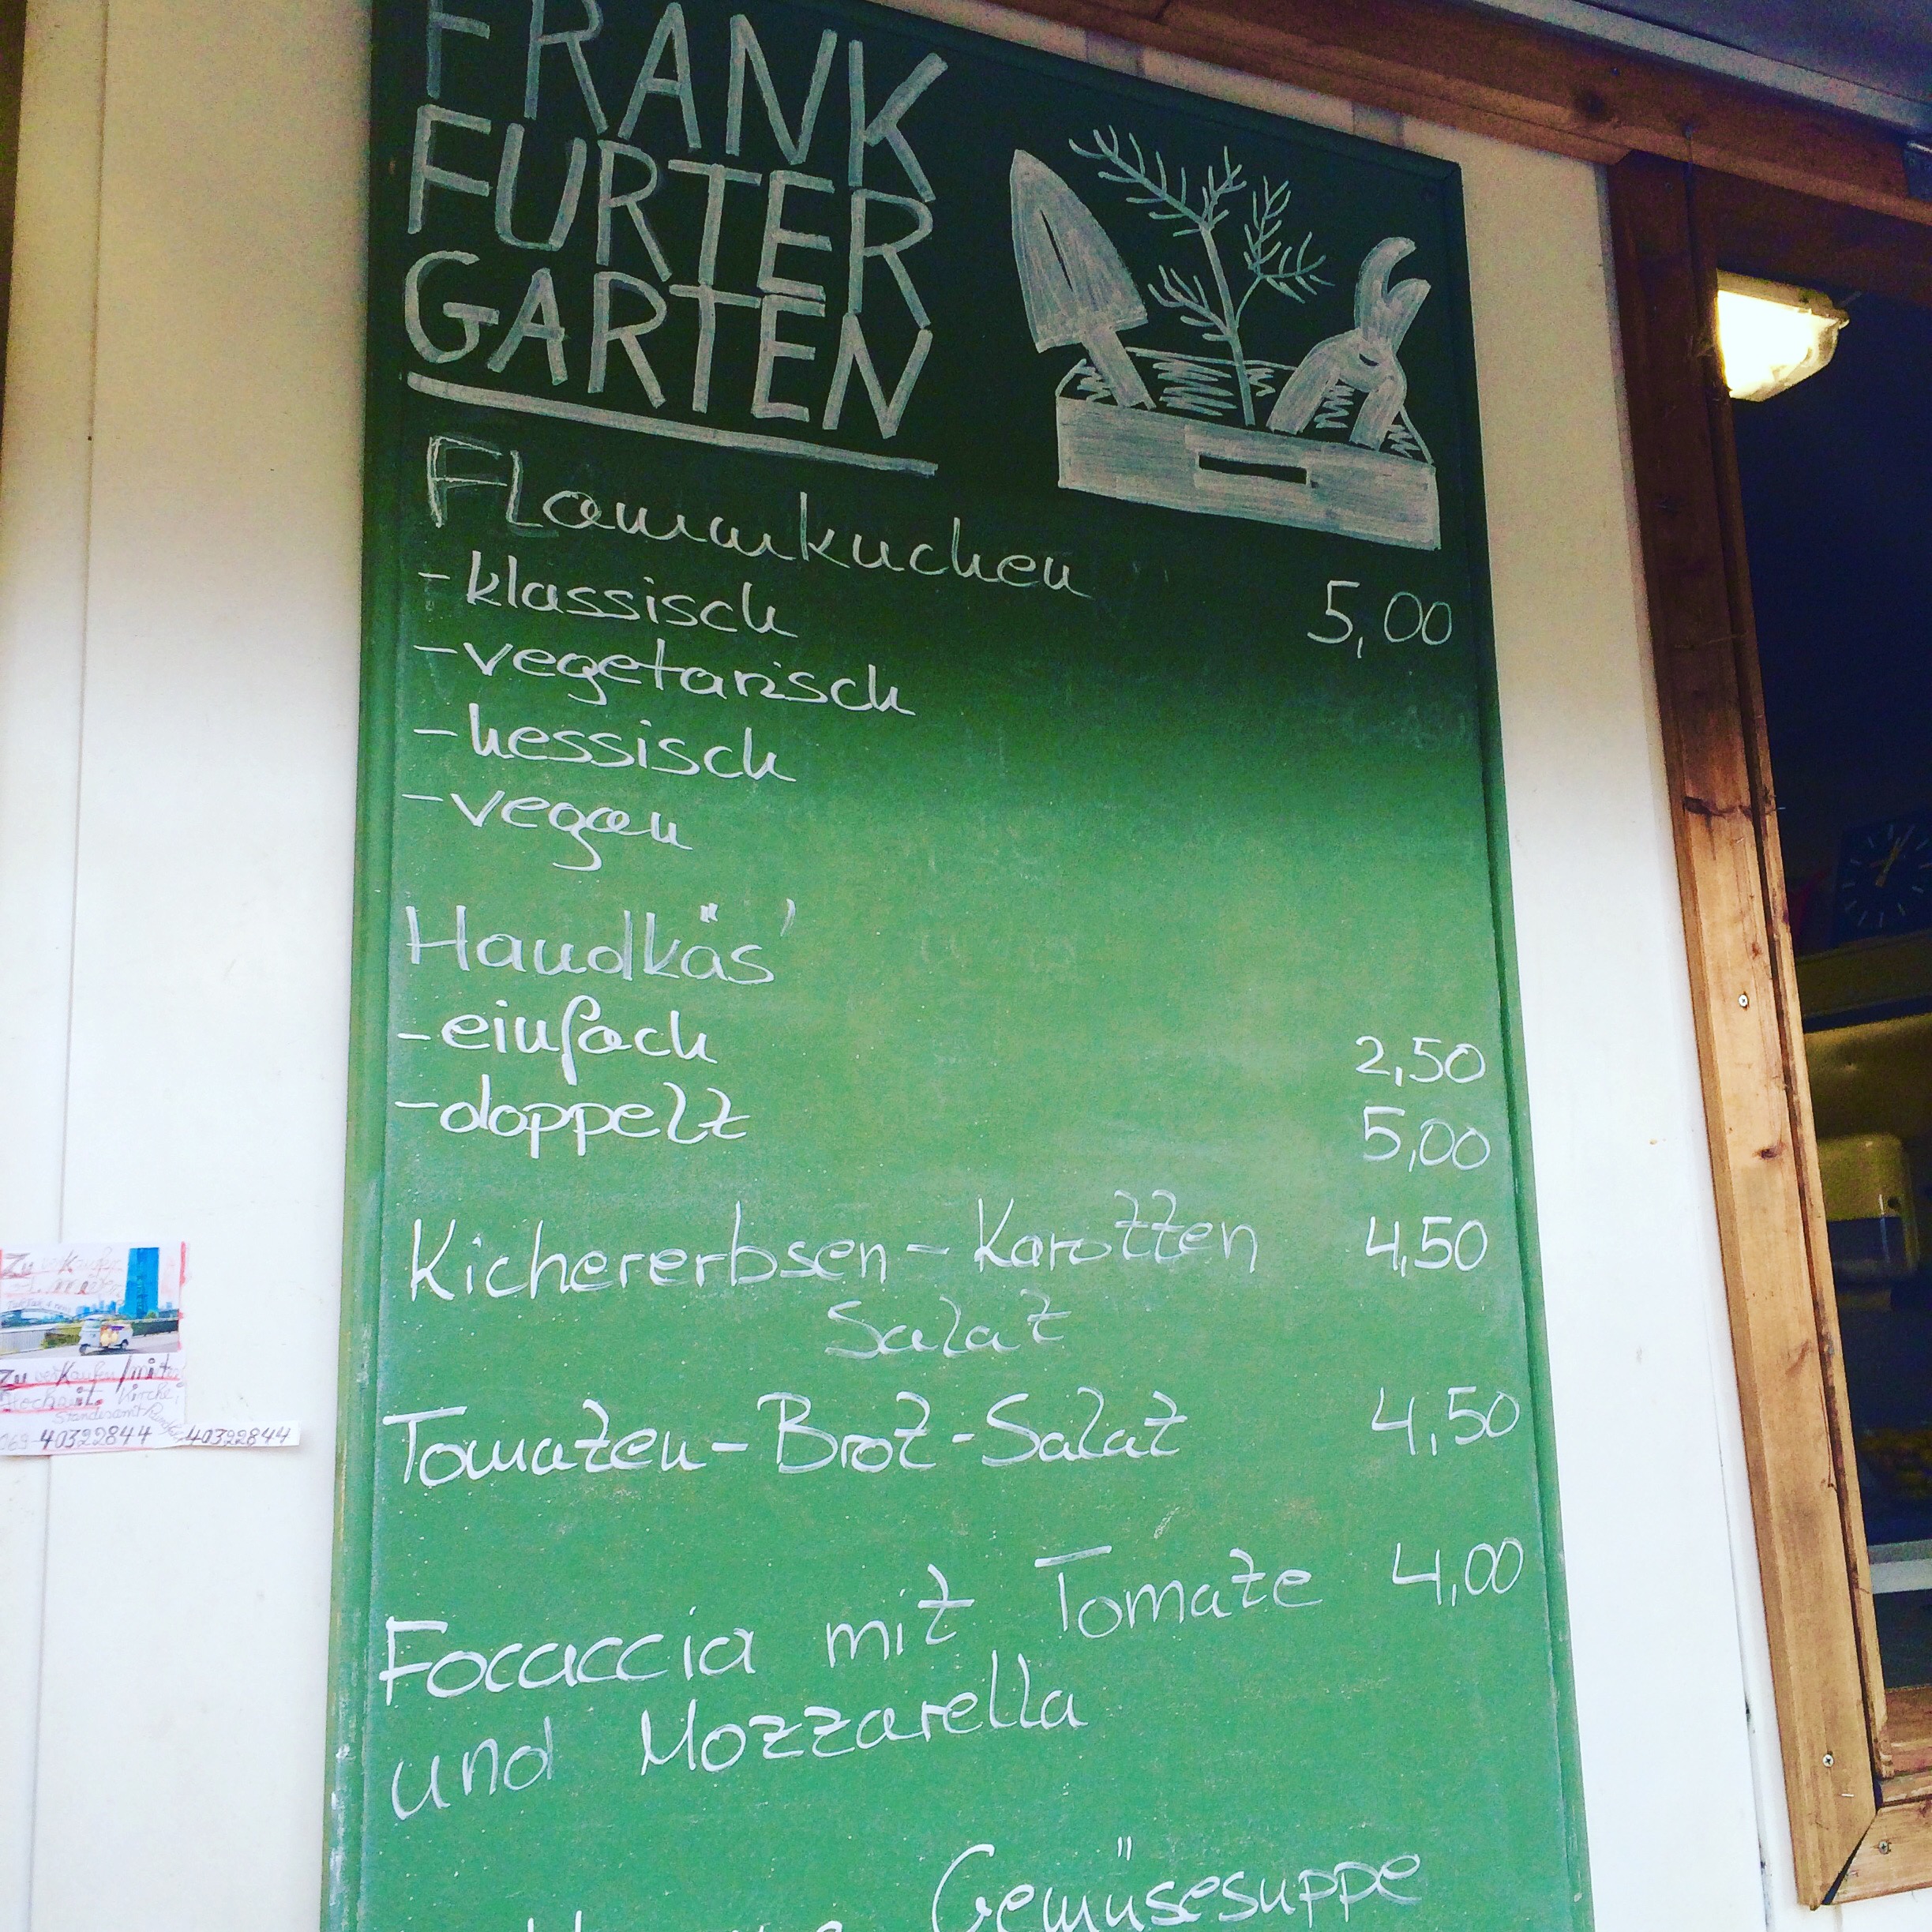 FRANK
FURTER
GARTEN
Flammkuchen 5,00
- klassisch
- vegetarisch
- hessisch
- vegan
Handkäs'
- einfach 2,50
- doppelt 5,00
Kichererbsen - Karotten 4,50
Salat
Tomaten - Brot - Salat 4,50
Focaccia mit Tomate 4,00
und Mozzarella
Gemüsesuppe
Zu
Zu verkaufen/
Kirche,
Standesamt/
069-40322844 40322844